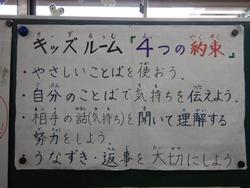 キッズルーム『4つの約束』
・やさしいことばを使おう.
・自分のことばで気持ちを伝えよう.
・相手の話(気持ち)を聞いて理解する
努力をしよう.
・うなずき・返事を大切にしよう